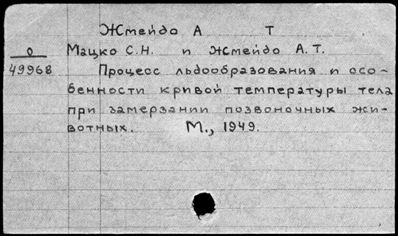 Жмейдо А Т
о Мацко С.Н. и Жмейдо А.Т.
49968 Процесс льдообразования и осо-
бенности кривой температуры тела
при замерзании позвоночных жи-
вотных. М., 1949.